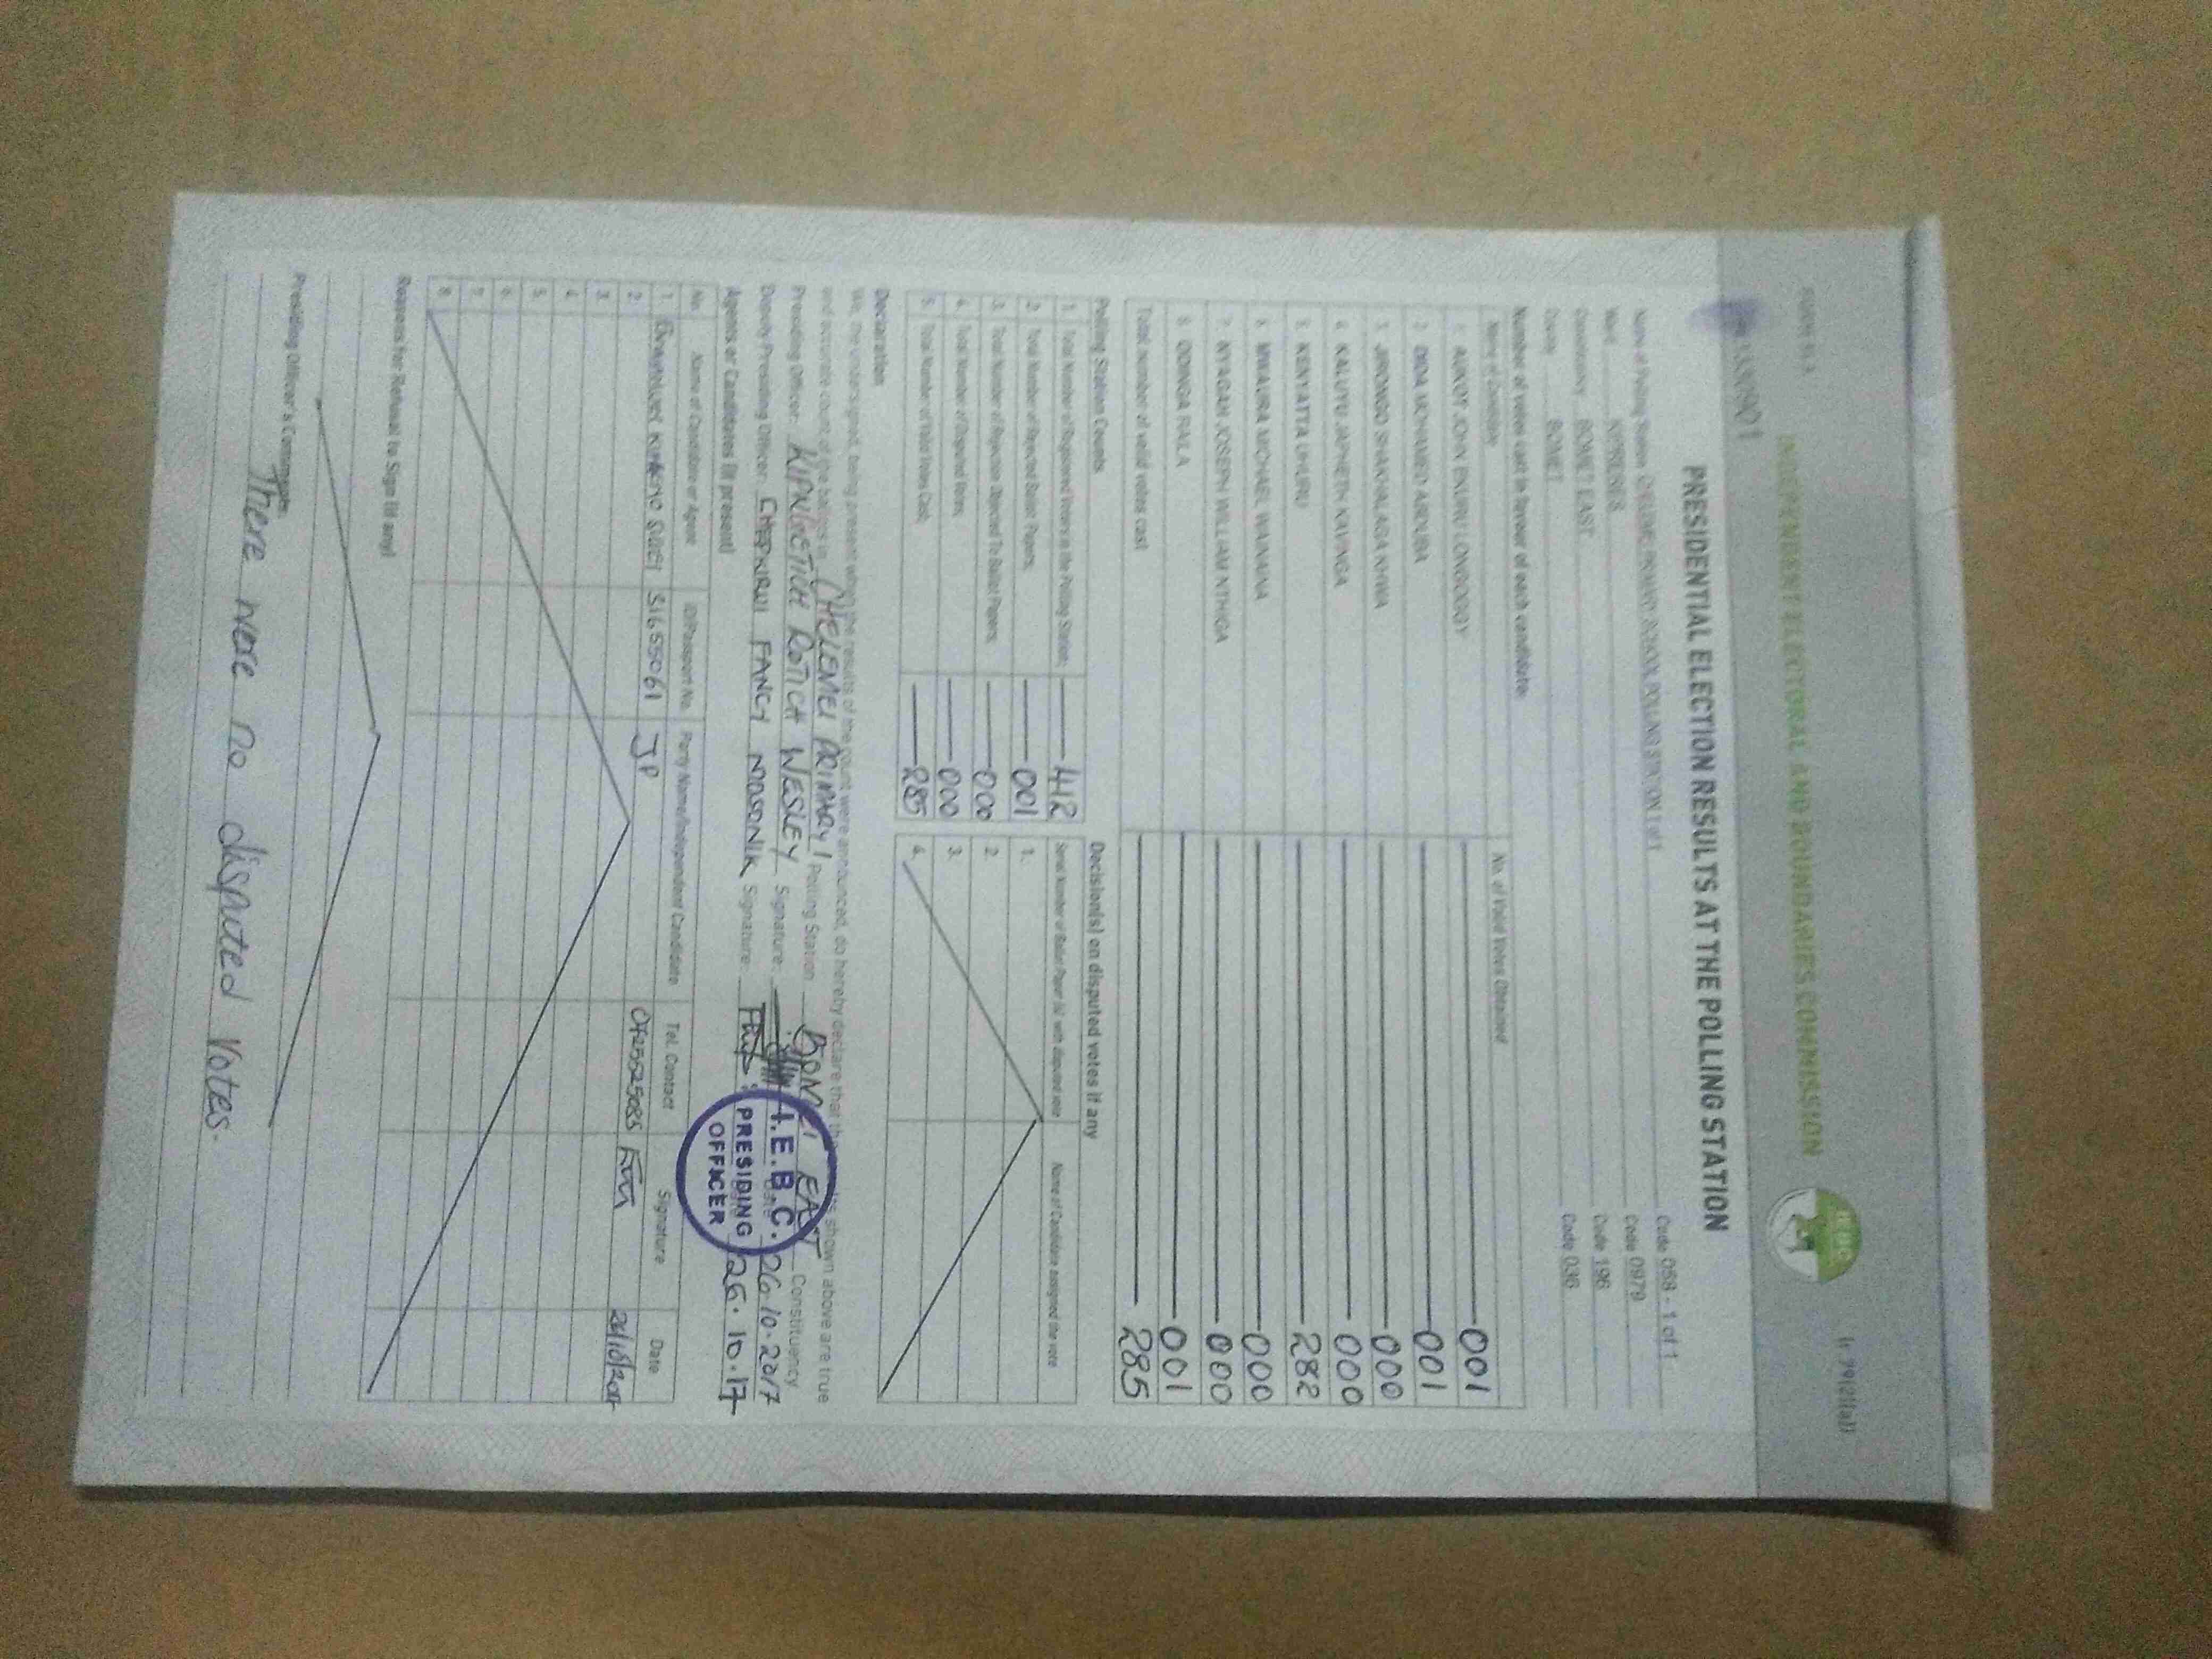 FORM 34A
INDEPENDENT ELECTORAL AND BOUNDARIES COMMISSION
IEBC
PRESIDENTIAL ELECTION RESULTS AT THE POLLING STATION
Name of Polling Station CHELEMEI PRIMARY SCHOOL POLLING STATION 1 of 1 Code 058 - 1 of 1
Ward KIPRERES Code 0979
Constituency BOMET EAST Code 196
County BOMET Code 036
Number of votes cast in favour of each candidate:
Name of Candidate No. of Valid Votes Obtained
1. AUKOT JOHN EKURU LONGOGGY 001
2. DIDA MOHAMED ABDUBA 001
3. JIRONGO SHAKHALAGA KHWA 000
4. KALUYU JAPHETH KAVINGA 000
5. KENYATTA UHURU 282
6. MWAURA MICHAEL WAINAINA 000
7. NYAGAH JOSEPH WILLIAM NTHIGA 000
8. ODINGA RAILA 001
Total number of valid votes cast 285
Polling Station Counts Decision(s) on disputed votes if any
1. Total Number of Registered Voters in the Polling Station; 412 Serial Number of Ballot Paper (s) with disputed vote Name of Candidate assigned the vote
2. Total Number of Rejected Ballot Papers; 001 1.
3. Total Number of Rejection Objected To Ballot Papers; 000 2.
4. Total Number of Disputed Votes; 000 3.
5. Total Number of Valid Votes Cast; 285 4.
Declaration
We, the undersigned, being present when the results of the count were announced, do hereby declare that the results shown above are true
and accurate count of the ballots in CHELEMEI PRIMARY 1 Polling Station BOMET EAST Constituency
Presiding Officer: KIPNGETICH ROTICH WESLEY Signature: Date 26.10.2017
Deputy Presiding Officer: CHEPKIRUI FANCY Signature: 26.10.17
I.E.B.C.
PRESIDING
OFFICER
Agents or Candidates (if present)
No. Name of Candidate or Agent ID/Passport No. Party Name/Independent Candidate Tel. Contact Signature Date
1. JP 26/10/2017
2.
3.
4.
5.
6.
7.
8.
Reasons for Refusal to Sign (if any)
Presiding Officer's Comments:
There were no disputed votes.